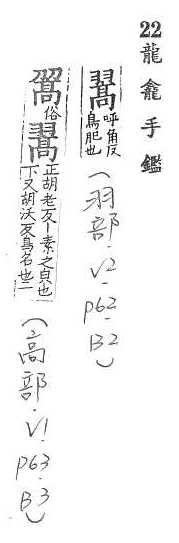 22 龍龕手鑑
翯 呼角反
鳥肥也
(羽部.V2.P62.B2)
俗 翯 正胡老反丨素之皃也
下又胡沃反鳥名也二
(高部.V1.P63.B3)